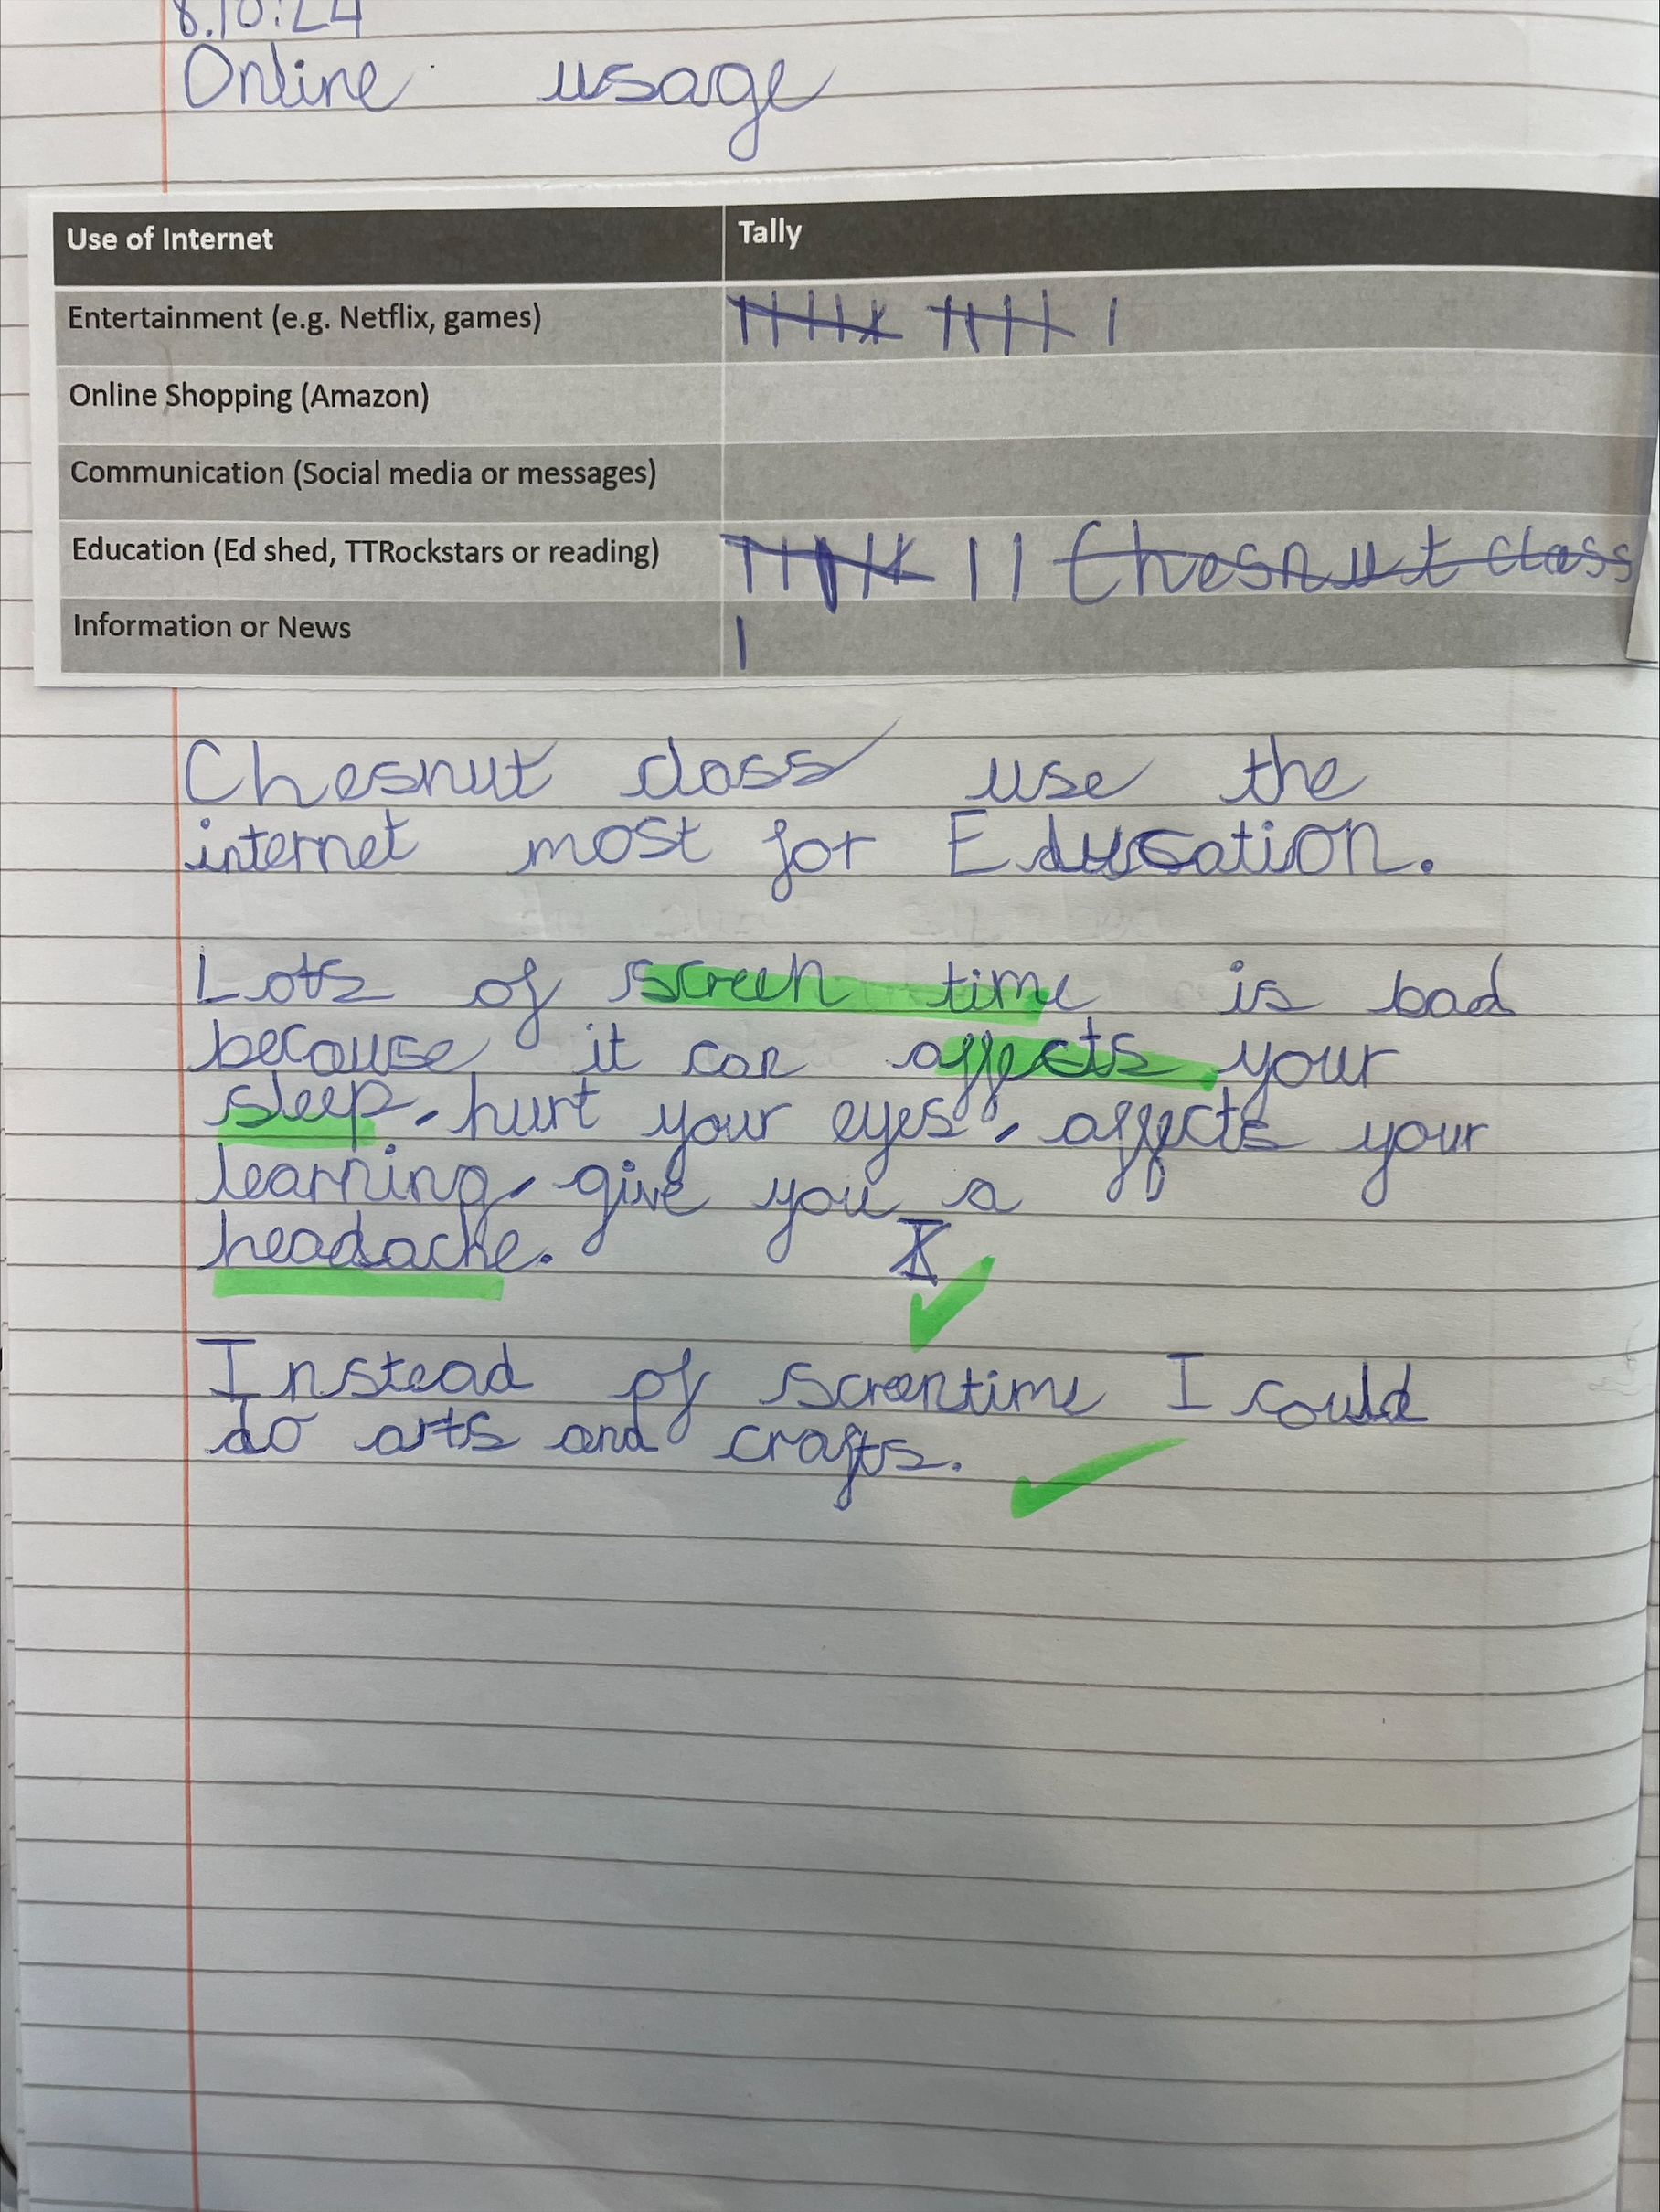 8.10.24
Online usage
Use of Internet Tally
Entertainment (e.g. Netflix, games)
Online Shopping (Amazon)
Communication (Social media or messages)
Education (Ed shed, TTRockstars or reading) Chesnut class
Information or News
Chesnut class use the
internet most for Education.
Lots of screen time is bad
because it can affects your
sleep, hurt your eyes, affects your
learning, give you a
headache.
Instead of screentime I could
do arts and crafts.